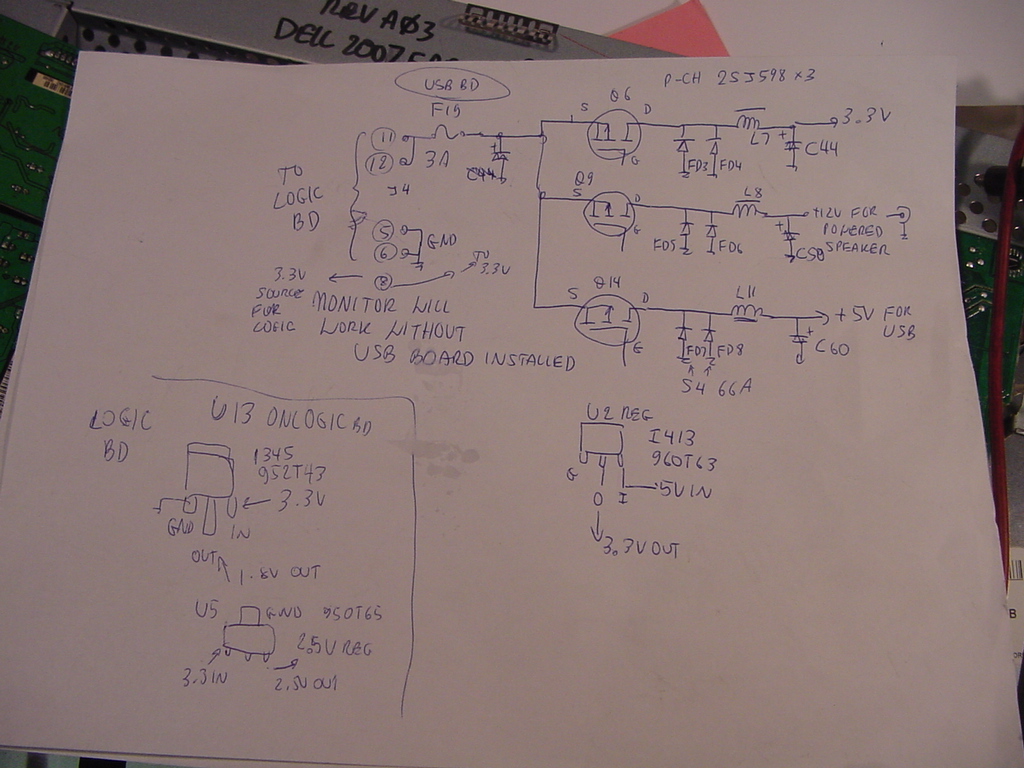 REV A03
DELL 2007
USB BD
P-CH 2SJ598 x3
F15
3A
11
12
J4
C44
TO
LOGIC
BD
5
6
GND
8
TO
3.3V
3.3V
SOURCE
FOR
LOGIC
Q6
S
D
G
FD3
FD4
L7
+
C44
3.3V
Q9
S
D
G
FD5
FD6
L8
+
C50
+12V FOR
POWERED
SPEAKER
Q14
S
D
G
FD7
FD8
L11
+
C60
+5V FOR
USB
S4 66A
MONITOR WILL
WORK WITHOUT
USB BOARD INSTALLED
LOGIC
BD
U13 ON LOGIC BD
1345
952T43
3.3V
GND
IN
OUT
1.8V OUT
U5
GND
950T65
2.5V REG
3.3 IN
2.5V OUT
U2 REG
I413
960T63
G
O
I
5V IN
3.3V OUT